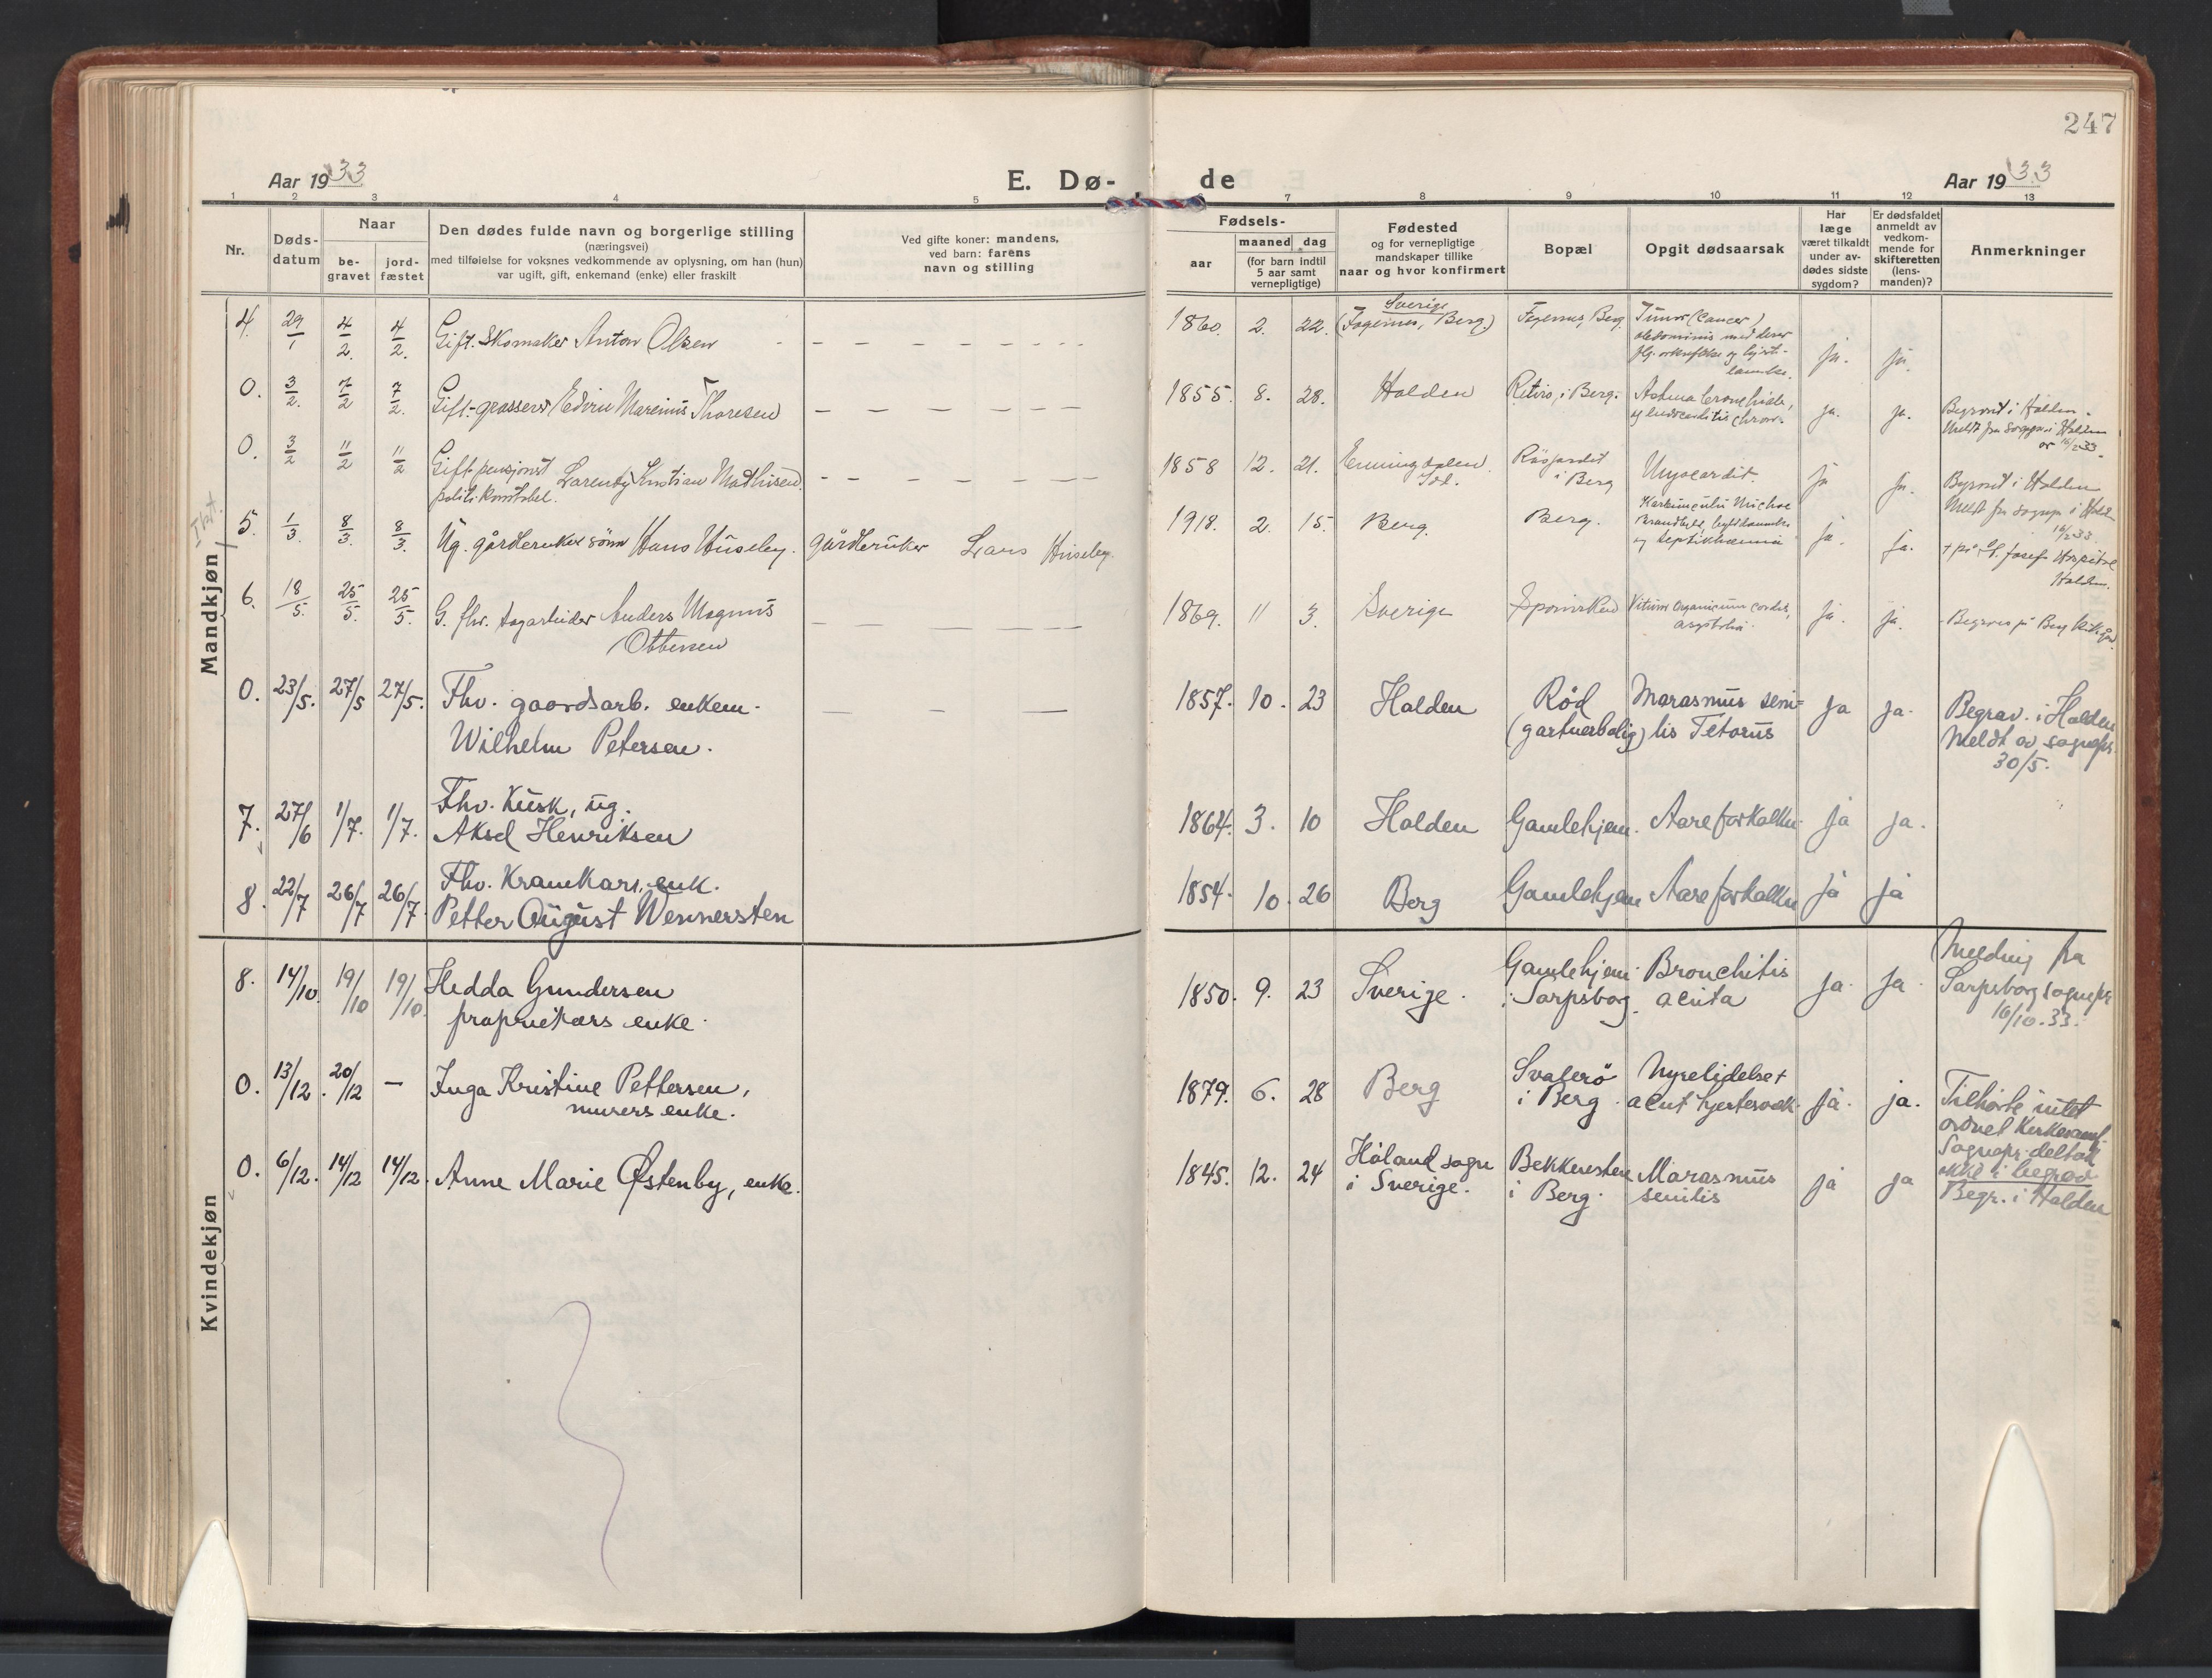 247
Aar 1933
E. Dø-
de
Aar 1933
1 2 3 4 5
6 7 8 9 10 11 12 13
Nr.
Døds-
datum
Naar
be-
gravet
jord-
fæstet
Den dødes fulde navn og borgerlige stilling
(næringsvei)
med tilføielse for voksnes vedkommende av oplysning, om han (hun)
var ugift, gift, enkemand (enke) eller fraskilt
Ved gifte koner: mandens,
ved barn: farens
navn og stilling
Fødsels-
aar
maaned dag
(for barn indtil
5 aar samt
vernepligtige)
Fødested
og for vernepligtige
mandskaper tillike
naar og hvor konfirmert
Bopæl
Opgit dødsaarsak
Har
læge
været tilkaldt
under av-
dødes sidste
sygdom?
Er dødsfaldet
anmeldt av
vedkom-
mende for
skifteretten
(lens-
manden)?
Anmerkninger
Mandkjøn
4. 29/1 4/2. 4/2. Gift. Skomaker Anton Olsen
1860. 2. 22. Sverige
(Fagernes, Berg.) Fagernes, Berg. Tumor (cancer)
abdominis med derav
ja. ja.
0. 3/2. 7/2 7/2. Gift. grosserer Edvin Marenius Thoresen
1855. 8. 28. Halden Retiro, i Berg. Astma bronchiale,
og endocarditis chron.
ja. ja. Begravet i Halden.
Meldt fra sogнepr. i Halden
16/2 33.
0. 3/2 11/2 11/2 Gift. pensjonist Larentz Kristian Mathisen.
politikonstabel.
1858 12. 21. Enningdalen.
Id. i Berg Myocardit.
ja ja. Begravet i Halden
Meldt fra sognepr. i Halden
16/2 33.
5. 1/3. 8/3. 8/3. Ug. gårdbruker sønn Hans Huseby. gårdbruker Lars Huseby.
1918. 2. 15. Berg. Berg.
ja. ja. + på St. Josefs Hospital
Halden.
6. 18/5. 25/5. 25/5. G. fhv. sagarbeider Anders Magnus
Ottersen
1869. 11 3. Sverige Sponvika Vitium organicum cordis,
asystoli.
ja. ja. Begraves på Berg kirkegård.
0. 23/5. 27/5 27/5. Fhv. gaardsarb. enkem.
Wilhelm Petersen.
1857. 10. 23 Halden Rød
(gartnerbolig) Marasmus seni-
lis Tetorus
ja ja. Begrav. i Halden
Meldt av sognepr.
30/5.
7. 27/6 1/7. 1/7. Fhv. Kusk, ug.
Aksel Henriksen
1864. 3. 10 Halden Gamlehjem. Aareforkalkn. ja ja.
8. 22/7 26/7 26/7. Fhv. Kranekar, enk.
Petter August Wennersten
1854. 10. 26 Berg Gamlehjem Aareforkalkn ja ja
Kvindekjøn
8. 14/10. 19/10 19/10. Hedda Gundersen
proprietærs enke.
1850. 9. 23 Sverige. Gamlehjem
i Sarpsborg. Bronchitis
acuta
ja. ja. Melding fra
Sarpsborg sognepr
16/10.33.
0. 13/12. 20/12 — Inga Kristine Pettersen,
murers enke.
1879. 6. 28 Berg Svalerö
i Berg. Nyrelidelse +
acut hjertesvak.
ja. ja. Tilhørte intet
ordnet kirkesamf.
Sognepr. deltok
ikke i begrav.
0. 6/12. 14/12 14/12. Anne Marie Østenby, enke.
1845. 12. 24 Håland sogn
i Sverige. Bekkenesten
i Berg. Marasmus
senilis
ja ja Begr. i Halden